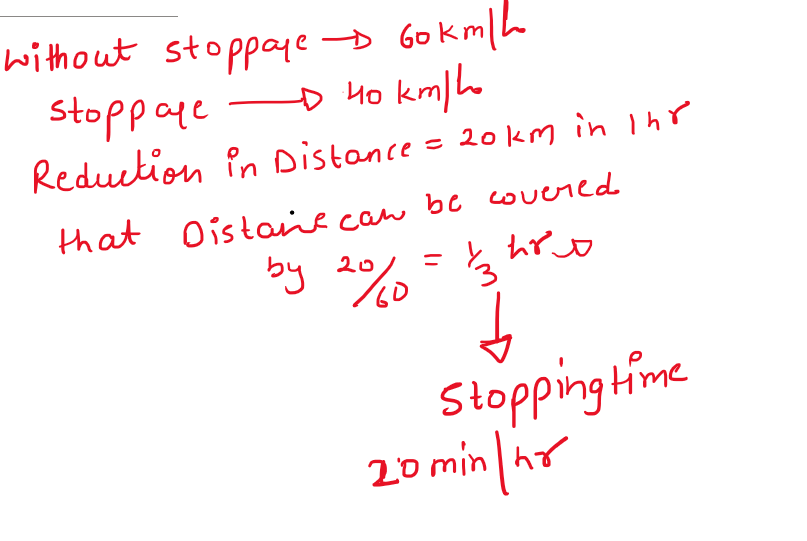 without stoppage → 60 km/h
stoppage → 40 km/h
Reduction in Distance = 20 km in 1 hr
that Distance can be covered
by 20/60 = 1/3 hr
↓
Stopping time
20 min/hr